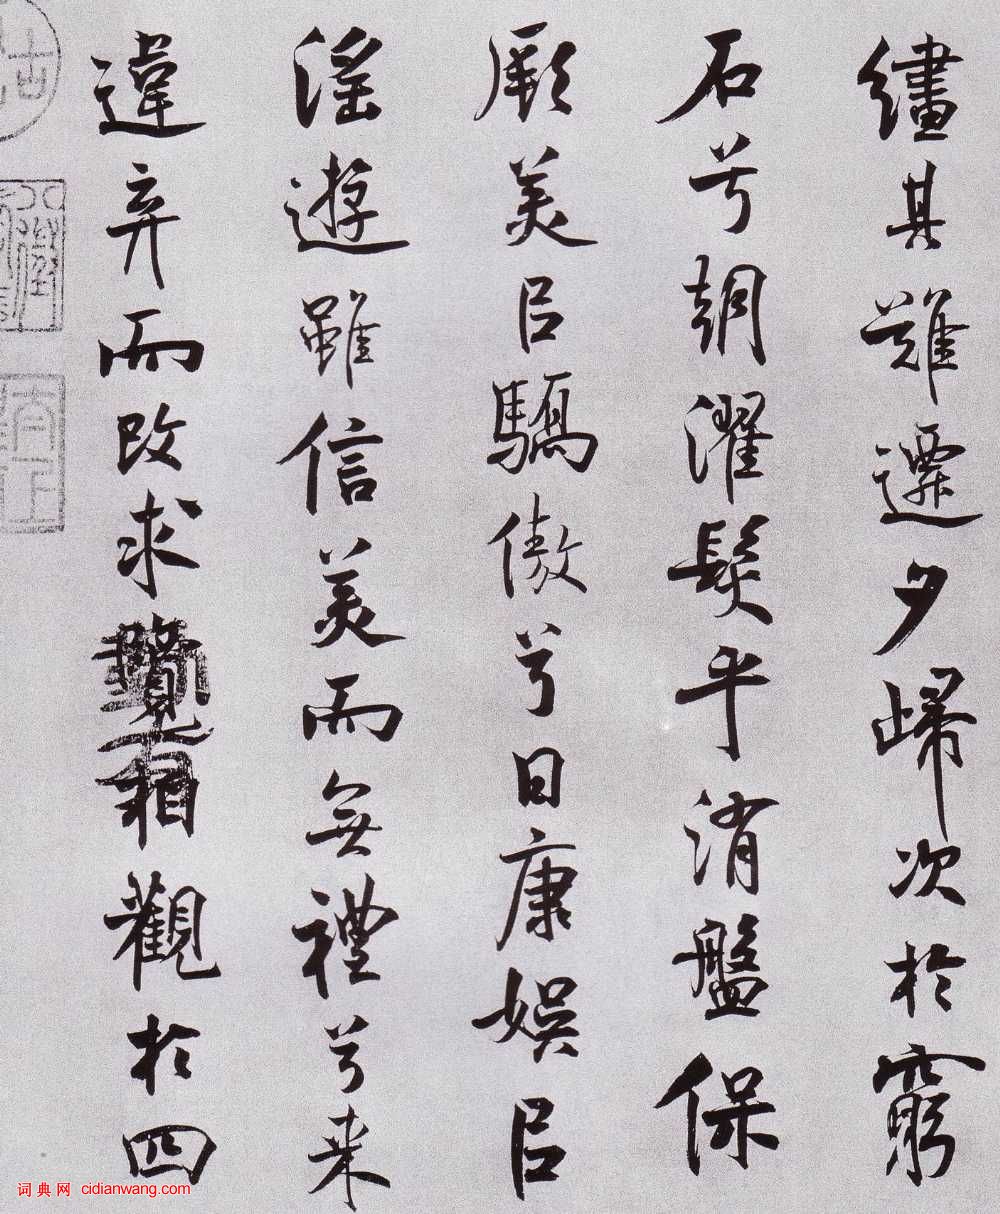 繣其難遷夕歸次於窮
石兮朝濯髮乎消盤保
厥美㠯驕傲兮日康娱㠯
淫遊雖信美而無禮兮来
違弃而改求覽相觀於四
词典网 cidianwang.com